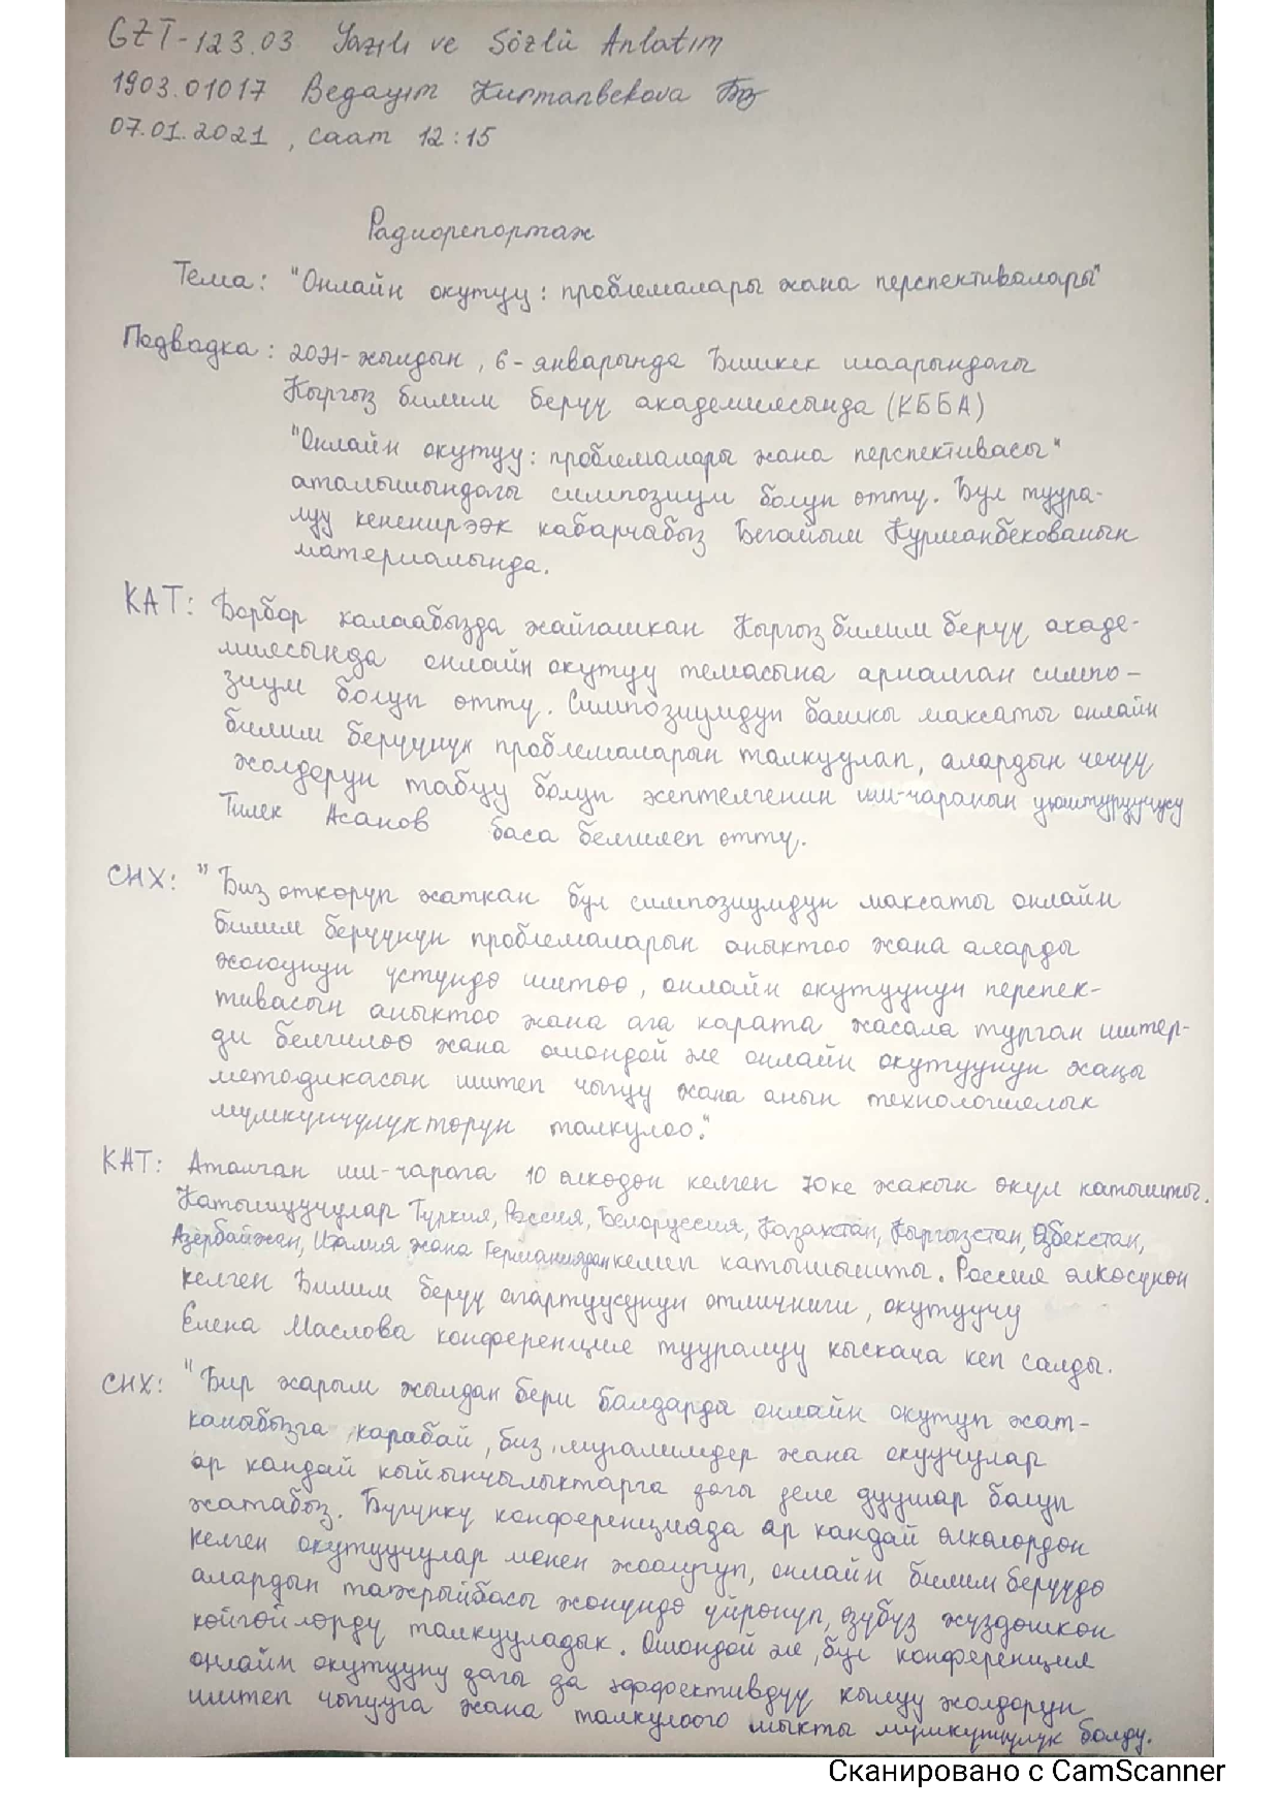 GZT-123.03 Yazılı ve Sözlü Anlatım
1903.01017 Begayım Kurmanbekova
07.01.2021, саат 12:15
Радиорепортаж
Тема: "Онлайн окутуу: проблемалары жана перспективалары"
Подводка: 2021-жылдын, 6-январында Бишкек шаарындагы
Кыргыз билим берүү академиясында (КББА)
"Онлайн окутуу: проблемалары жана перспективасы"
аталышындагы симпозиум болуп өттү. Бул туура-
луу кененирээк кабарчыбыз Бегайым Курманбекованын
материалында.
КАТ: Борбор калаабызда жайгашкан Кыргыз билим берүү акаде-
миясында онлайн окутуу темасына арналган симпо-
зиум болуп өттү. Симпозиумдун башкы максаты онлайн
билим берүүнүн проблемаларын талкуулап, алардын чечүү
жолдорун табуу болуп эептелгенин иш-чаранын уюштуруучусу
Тилек Асанов баса белгилеп өттү.
СНХ: "Биз өткөрүп жаткан бул симпозиумдун максаты онлайн
билим берүүнүн проблемаларын аныктоо жана аларды
жоюунун үстүндө иштөө, онлайн окутуунун перспек-
тивасын аныктоо жана ага карата жасала турган иштер-
ди белгилөө жана ошондой эле онлайн окутуунун жаңы
методикасын иштеп чыгуу жана анын технологиялык
мүмкүнчүлүктөрүн талкулоо."
КАТ: Аталган иш-чарага 10 өлкөдөн келген 70ке жакын өкүл катышты.
Катышуучулар Туркия, Россия, Белоруссия, Казахстан, Кыргызстан, Өзбекстан,
Азербайжан, Италия жана Германиядан келип катышышты. Россия өлкөсүнөн
келген Билим берүү агартуусунун отличниги, окутуучу
Елена Маслова конференция тууралуу кыскача кеп салды.
СНХ: "Бир жарым жылдан бери балдарды онлайн окутуп жат-
каныбызга карабай, биз, мугалимдер жана окуучулар
ар кандай кыйынчылыктарга дагы деле дуушар болуп
жатабыз. Бүгүнкү конференцияда ар кандай өлкөлөрдөн
келген окутуучулар менен жолугуп, онлайн билим берүүдө
алардын тажрыйбасы жөнүндө үйрөнүп, өзүбүз жүздөшкөн
көйгөйлөрдү талкууладык. Ошондой эле, бул конференция
онлайн окутууну дагы да эффективдүү кылуу жолдорун
иштеп чыгууга жана талкулоого мыкты мүмкүнчүлүк болду.
Сканировано с CamScanner